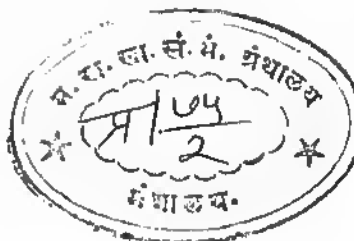 म. रा. सा. सं. मं. ग्रंथालय
प्रा ७५
2
ग्रंथालय.